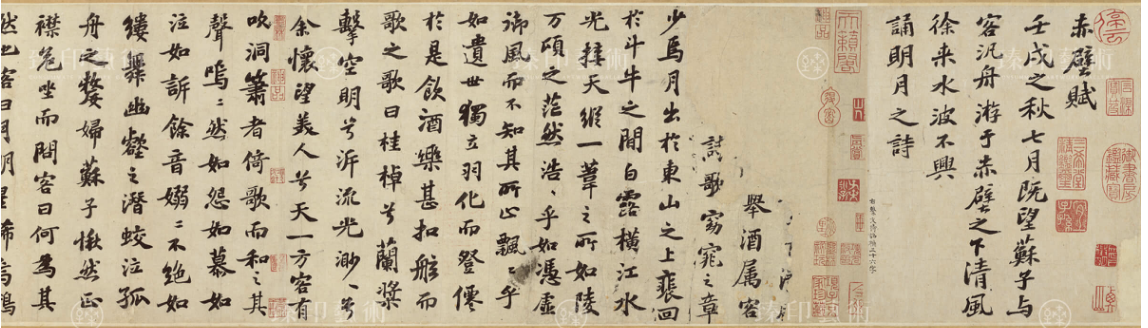 赤壁賦
壬戌之秋七月既望蘇子与
客汎舟游于赤壁之下清風
徐来水波不興
誦明月之詩
舉酒属客
歌窈窕之章
少焉月出於東山之上裴回
於斗牛之間白露橫江水
光接天縱一葦之所如陵
万頃之茫然浩〻乎如憑虛
御風而不知其所止飄〻乎
如遺世獨立羽化而登僊
於是飲酒樂甚扣舷而
歌之歌曰桂棹兮蘭槳
擊空明兮泝流光渺〻兮
余懷望美人兮天一方客有
吹洞簫者倚歌而和之其
聲嗚〻然如怨如慕如
泣如訴餘音嫋〻不絕如
縷舞幽壑之潛蛟泣孤
舟之嫠婦蘇子愀然正
襟危坐而問客曰何為其
然也客曰月明星稀烏鵲
天籟閣
臻印藝術